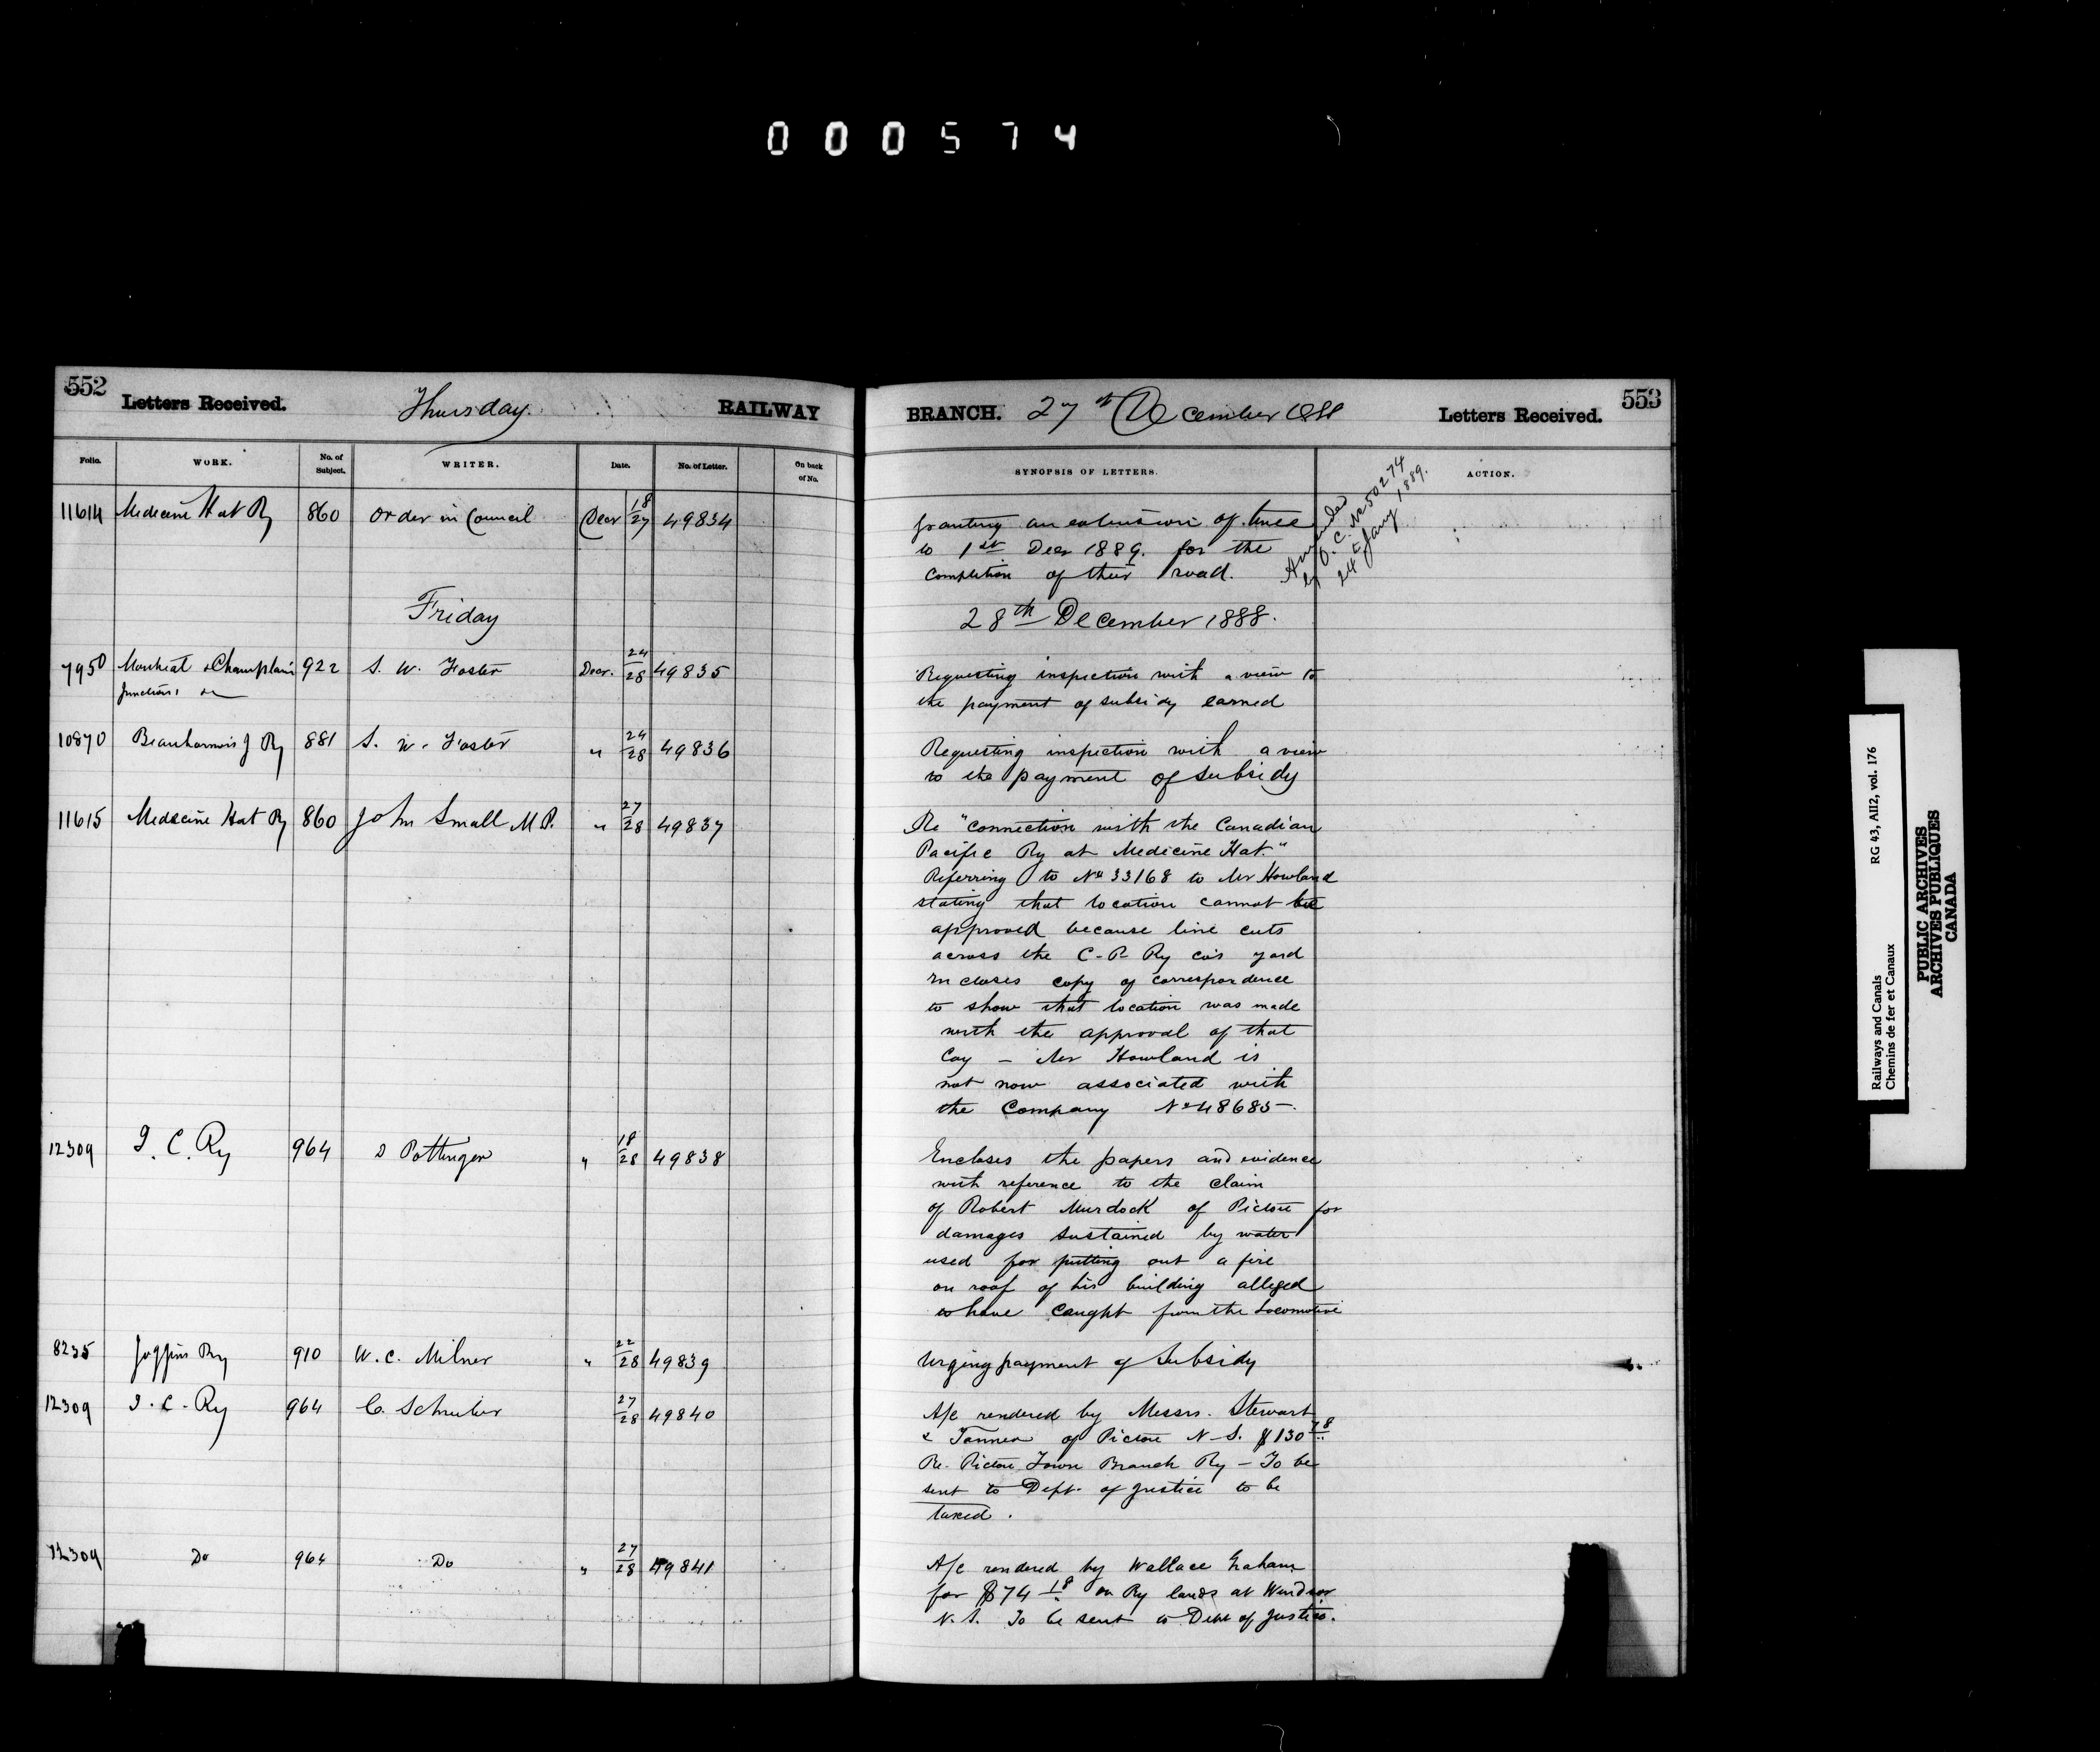 000574
552 Letters Received. Thursday. RAILWAY
Folio. WORK. No. of Subject. WRITER. Date. No. of Letter. On back of No.
11614 Medecine Hat Ry 860 Order in Council Decr 18/27 49834
Friday
7950 Montreal & Champlain 922 S. W. Foster Decr. 24/28 49835
Junction
10870 Beauharnois J Ry 881 S. W. Foster " 24/28 49836
11615 Medecine Hat Ry 860 John Small M.P. " 27/28 49837
12309 I. C. Ry 964 D Pottinger " 18/28 49838
8235 Joggins Ry 910 W. C. Milner " 22/28 49839
12309 I. C. Ry 964 C. Schreiber 27/28 49840
12309 Do 964 Do " 27/28 49841
BRANCH. 27th December 1888 Letters Received. 553
SYNOPSIS OF LETTERS. ACTION.
Granting an extension of time
to 1st Decr 1889. for the
completion of their road.
Amended
by O.C. No 50274
24th Jany 1889.
28th December 1888.
Requesting inspection with a view to
the payment of subsidy earned
Requesting inspection with a view
to the payment of subsidy
Re "connection with the Canadian
Pacific Ry at Medicine Hat."
Referring to No 33168 to Mr Howland
stating that location cannot be
approved because line cuts
across the C-P Ry co's yard
Incloses copy of correspondence
to show that location was made
with the approval of that
Coy - Mr Howland is
not now associated with
the Company No 48685-.
Encloses the papers and evidence
with reference to the claim
of Robert Murdock of Pictou for
damages sustained by water
used for putting out a fire
on roof of his building alleged
to have caught from the Locomotive
Urging payment of Subsidy
A/c rendered by Messrs. Stewart
& Tanner of Pictou N-S. $130 78
Re. Pictou Town Branch Ry - To be
sent to Dept. of Justice to be
taxed.
A/c rendered by Wallace Graham
for $74 18 on Ry lands at Windsor
N.S. To be sent to Dept of Justice.
Railways and Canals RG 43, AII2, vol. 176
Chemins de fer et Canaux
PUBLIC ARCHIVES
ARCHIVES PUBLIQUES
CANADA